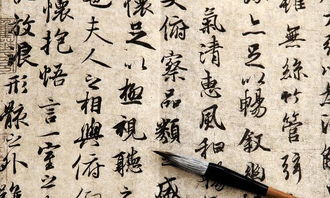 雖無絲竹管弦
亦足以暢敘幽
氣清惠風和暢
大俯察品類之盛
懷足以極視聽之
也夫人之相與俯
懷抱悟言一室之
放浪形骸之外雖